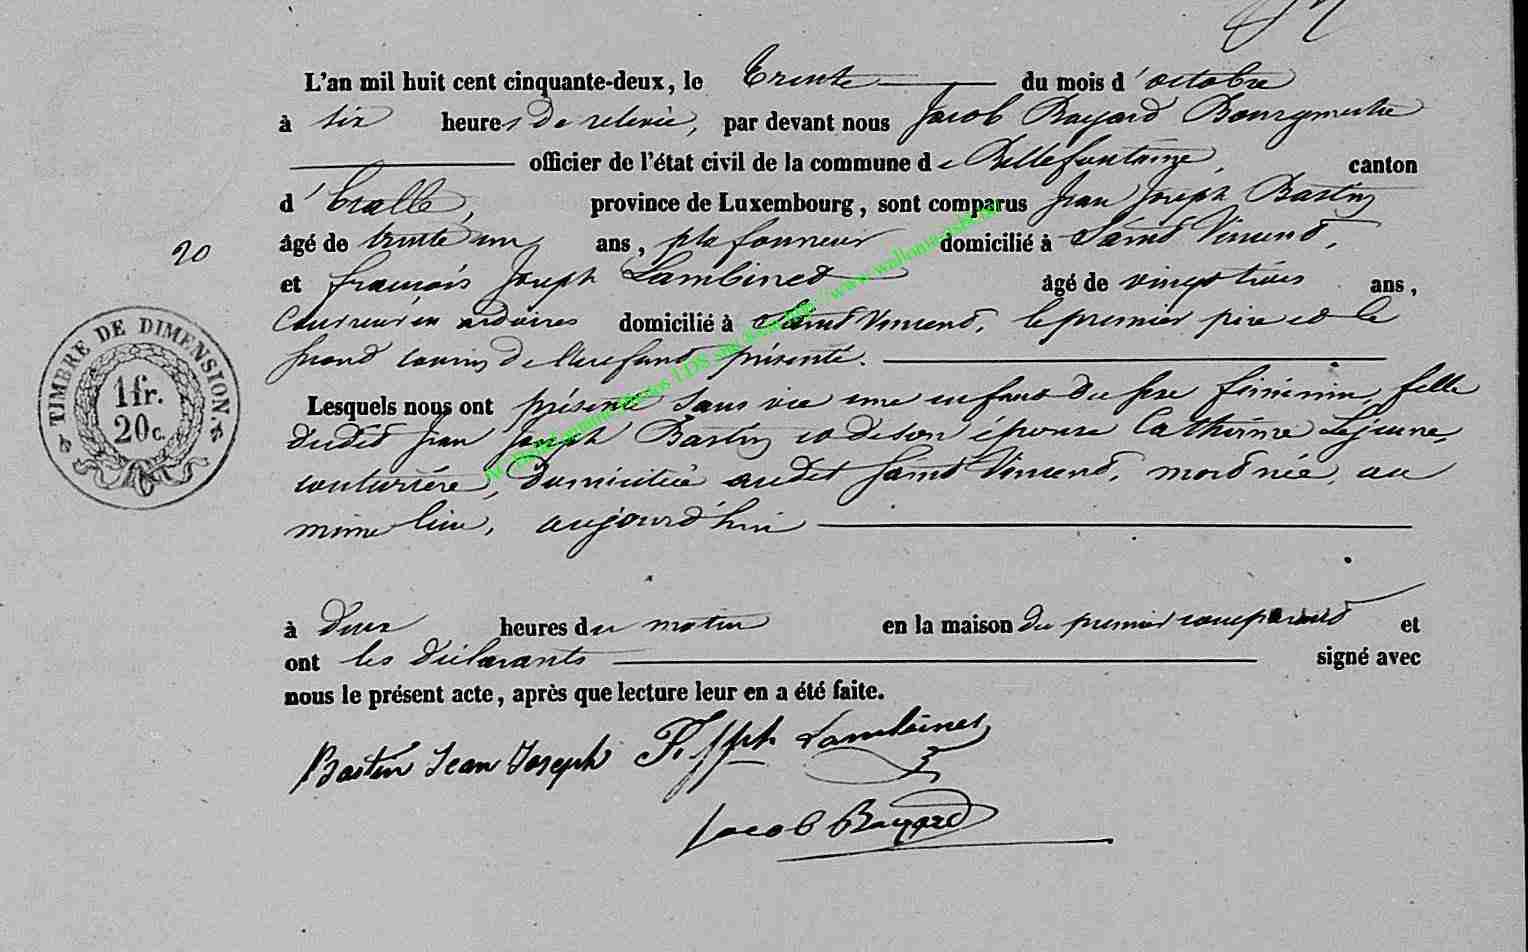 L'an mil huit cent cinquante-deux, le trente du mois d'octobre
à six heures de relevée, par devant nous Jacob Bayard Bourgmestre
officier de l'état civil de la commune de Bellefontaine, canton
d'Etalle, province de Luxembourg, sont comparus Jean Joseph Bastin
20
âgé de trente un ans, plafonneur domicilié à Saint Vincent,
et françois Joseph Lambinet âgé de vingt trois ans,
Couvreur en ardoises domicilié à Saint Vincent, le premier père et le
second cousin de l'enfant présenté.
TIMBRE DE DIMENSION
1 fr.
20 c.
Lesquels nous ont présenté sans vie une enfant du sexe féminin, fille
dudit Jean Joseph Bastin et de son épouse Catherine Lejeune,
couturière, domiciliée audit Saint Vincent, mort née, au
même lieu, aujourd'hui
à deux heures du matin en la maison du premier comparant et
ont les déclarants signé avec
nous le présent acte, après que lecture leur en a été faite.
Bastin Jean Joseph F. Jph Lambinet
Jacob Bayard